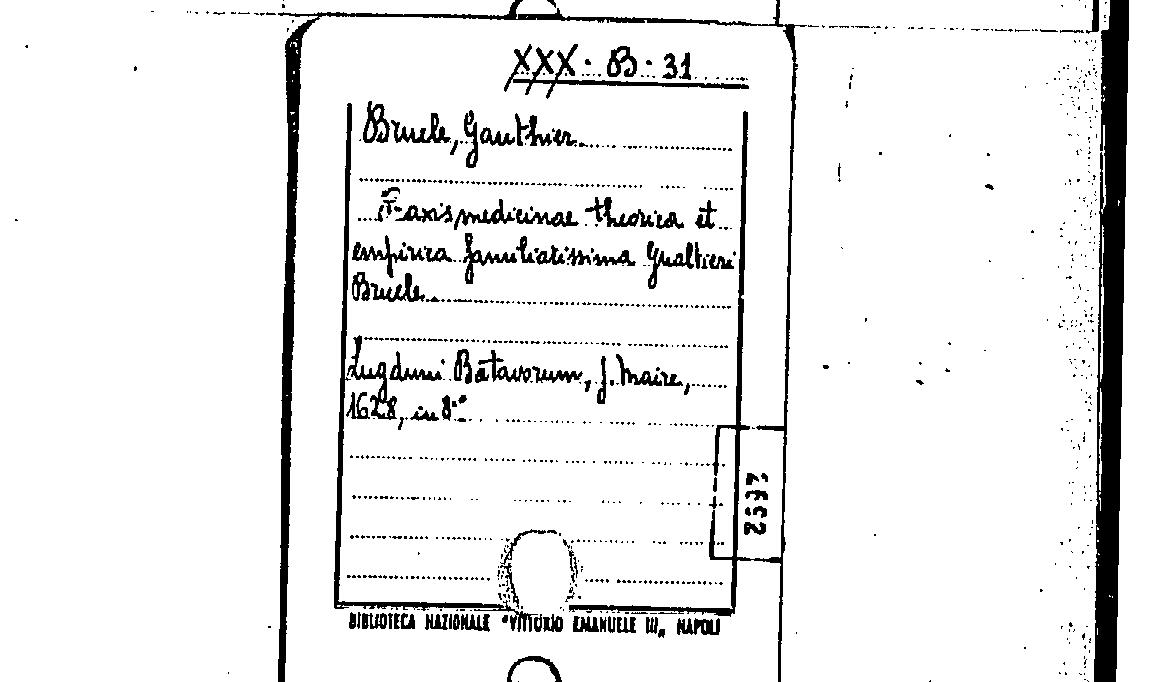 XXX. B. 31
Bruele, Gauthier.
Praxis medicinae theorica et
empirica familiarissima Gualtieri
Bruele.
Lugduni Batavorum, J. Maire,
1628, in 8.°
BIBLIOTECA NAZIONALE "VITTORIO EMANUELE III„ NAPOLI